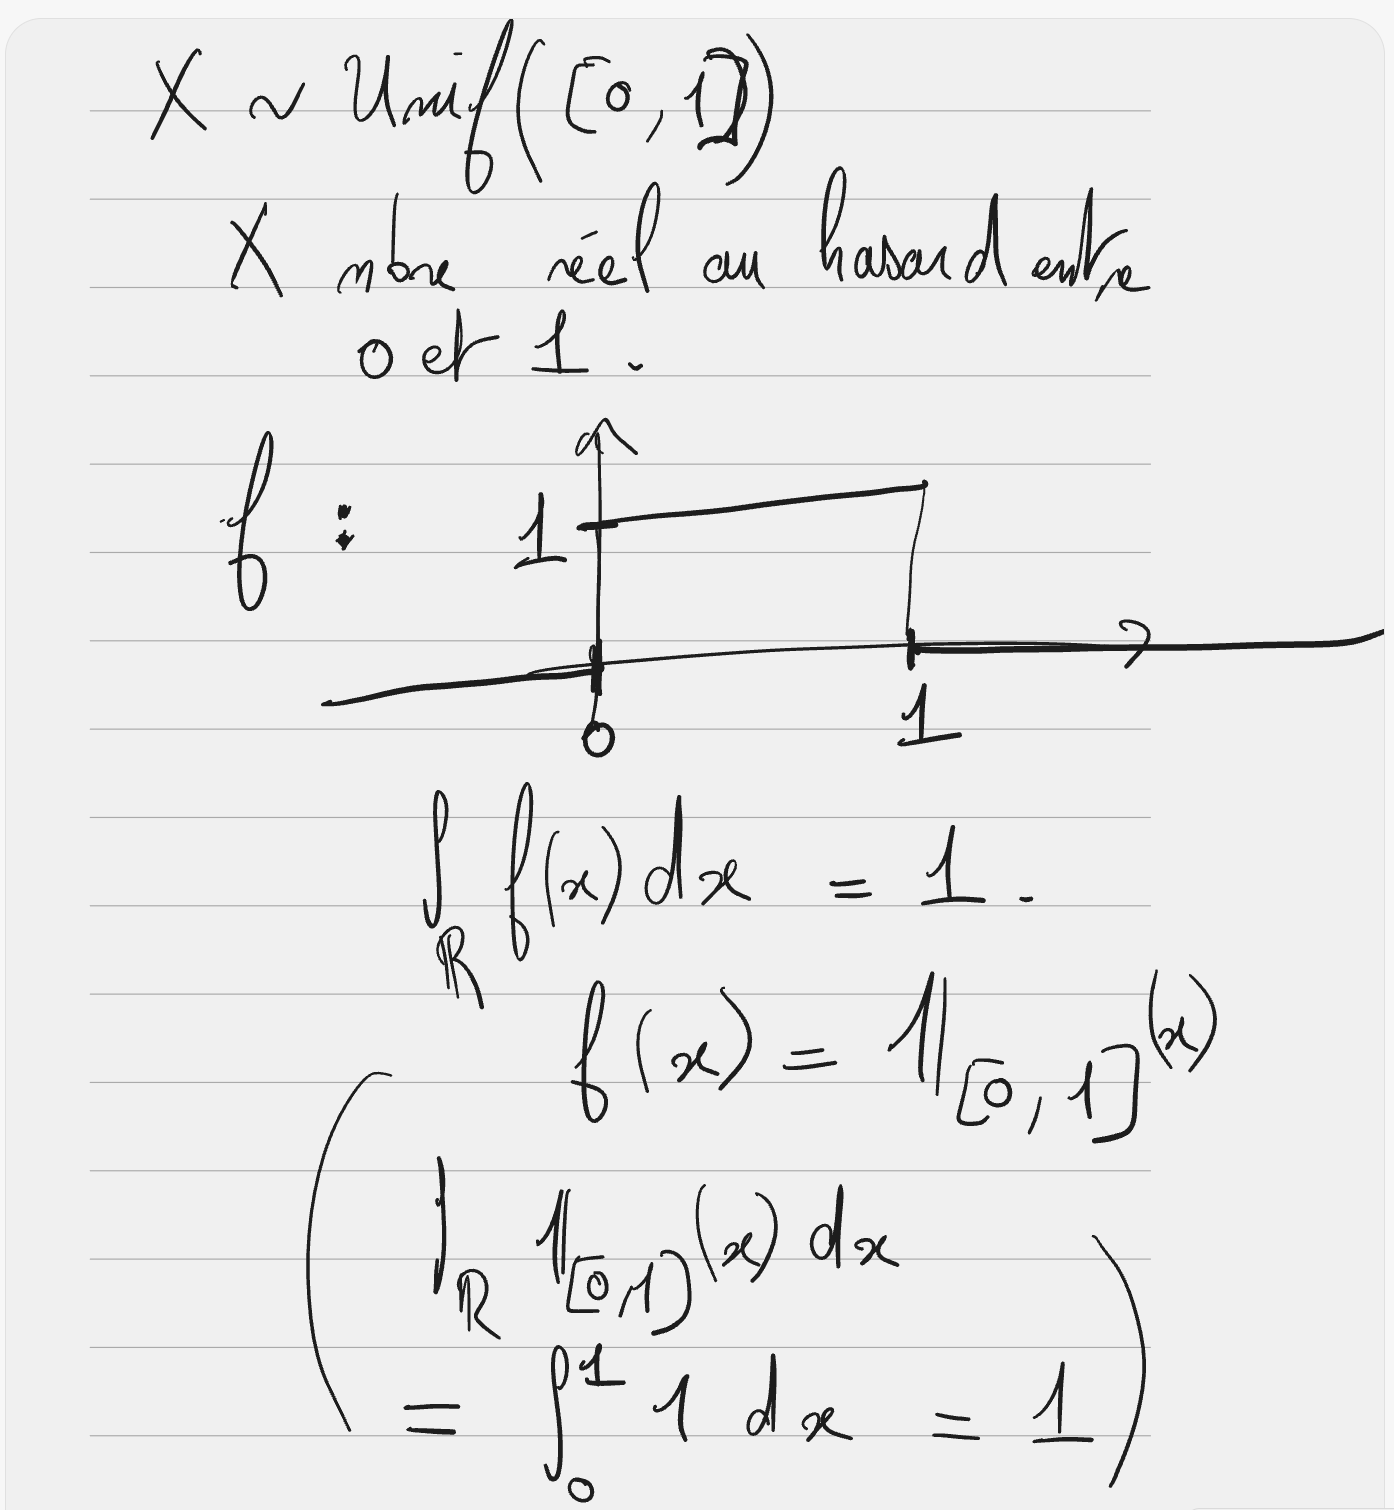 X ~ Unif([0, 1])
X nbre réel au hasard entre
0 et 1.
f :
1
0
1
∫_ℝ f(x) dx = 1.
f(x) = 𝟙_[0, 1] (x)
( ∫_ℝ 𝟙_[0,1] (x) dx
= ∫_0^1 1 dx = 1 )